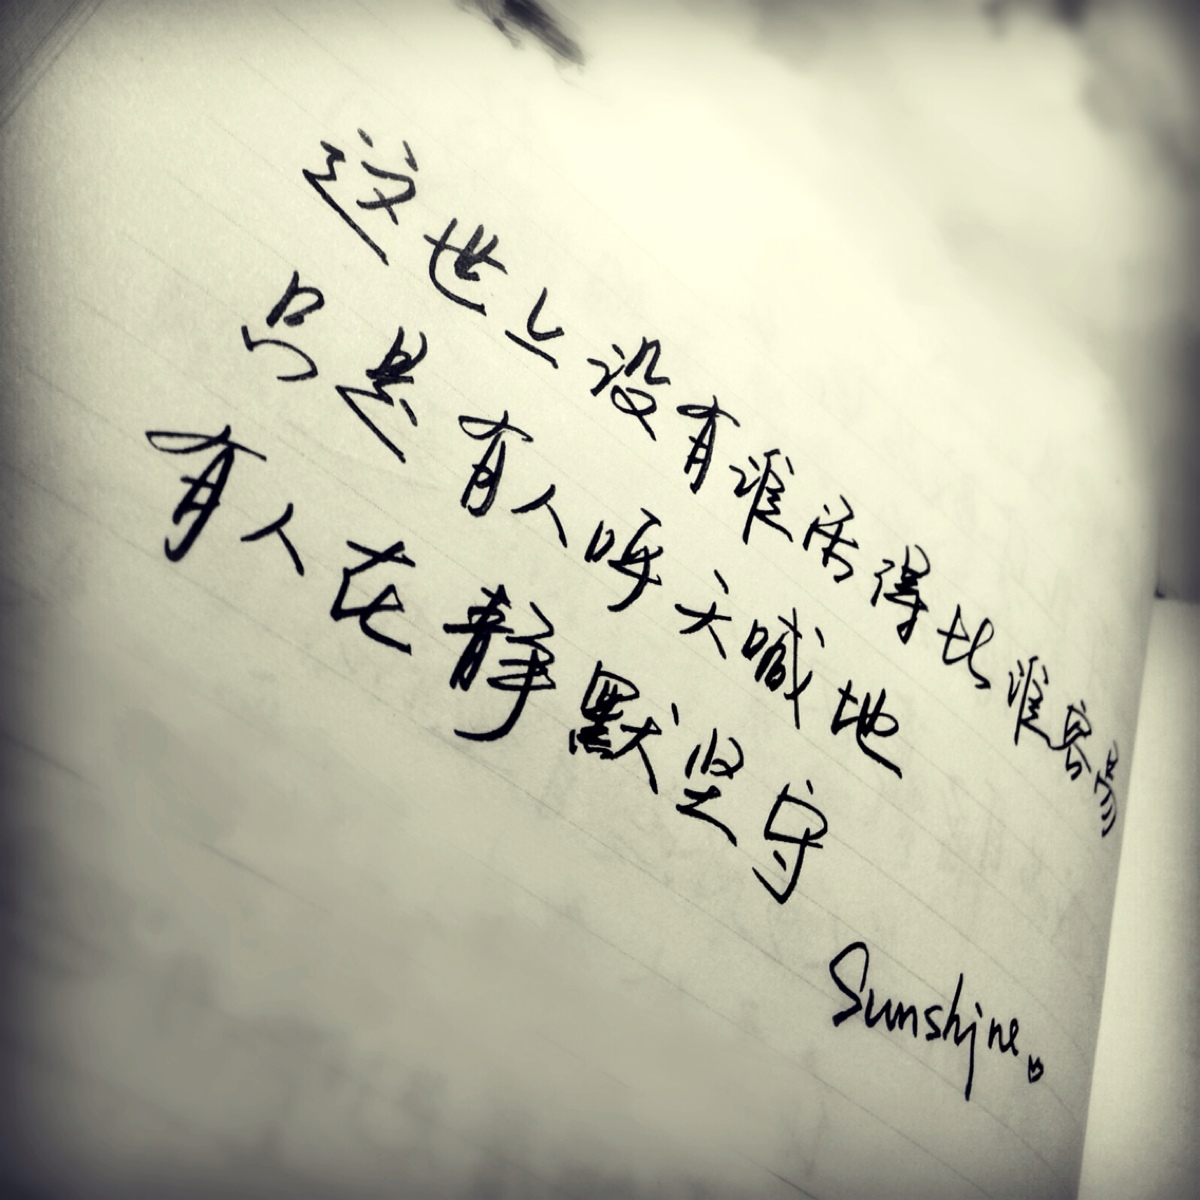 这世上没有谁活得比谁容易
只是有人呼天喊地
有人在静默坚守
Sunshine